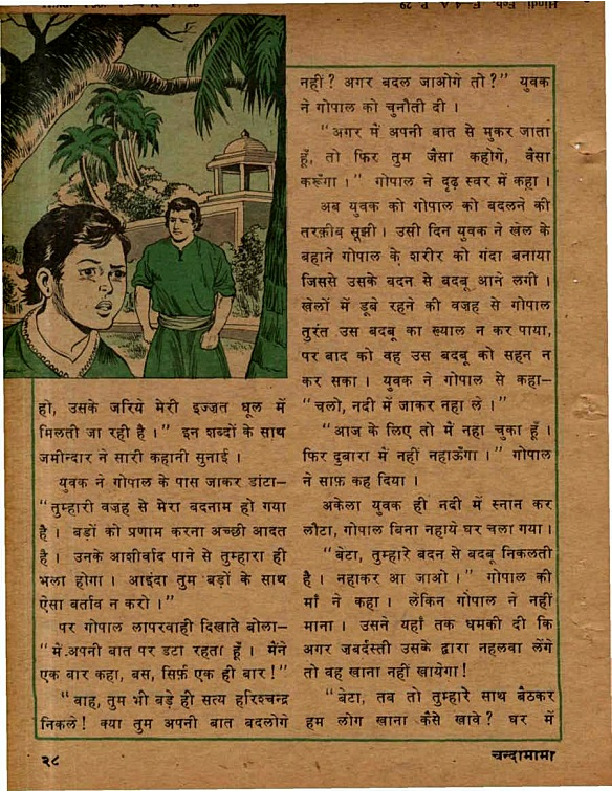 हो, उसके जरिये मेरी इज्जत धूल में
मिलती जा रही है।” इन शब्दों के साथ
जमीन्दार ने सारी कहानी सुनाई।
युवक ने गोपाल के पास जाकर डांटा—
“तुम्हारी वजह से मेरा बदनाम हो गया
है। बड़ों को प्रणाम करना अच्छी आदत
है। उनके आशीर्वाद पाने से तुम्हारा ही
भला होगा। आइंदा तुम बड़ों के साथ
ऐसा बर्ताव न करो।”
पर गोपाल लापरवाही दिखाते बोला—
“मैं अपनी बात पर डटा रहता हूँ। मैंने
एक बार कहा, बस, सिर्फ़ एक ही बार!”
“वाह, तुम भी बड़े ही सत्य हरिश्चन्द्र
निकले! क्या तुम अपनी बात बदलोगे
नहीं? अगर बदल जाओगे तो?” युवक
ने गोपाल को चुनौती दी।
“अगर मैं अपनी बात से मुकर जाता
हूँ, तो फिर तुम जैसा कहोगे, वैसा
करूँगा।” गोपाल ने दृढ़ स्वर में कहा।
अब युवक को गोपाल को बदलने की
तरक़ीब सूझी। उसी दिन युवक ने खेल के
बहाने गोपाल के शरीर को गंदा बनाया
जिससे उसके बदन से बदबू आने लगी।
खेलों में डूबे रहने की वजह से गोपाल
तुरंत उस बदबू का ख्याल न कर पाया,
पर बाद को वह उस बदबू को सहन न
कर सका। युवक ने गोपाल से कहा—
“चलो, नदी में जाकर नहा ले।”
“आज के लिए तो मैं नहा चुका हूँ।
फिर दुबारा मैं नहीं नहाऊँगा।” गोपाल
ने साफ़ कह दिया।
अकेला युवक ही नदी में स्नान कर
लौटा, गोपाल बिना नहाये घर चला गया।
“बेटा, तुम्हारे बदन से बदबू निकलती
है। नहाकर आ जाओ।” गोपाल की
माँ ने कहा। लेकिन गोपाल ने नहीं
माना। उसने यहाँ तक धमकी दी कि
अगर जबर्दस्ती उसके द्वारा नहलवा लेंगे
तो वह खाना नहीं खायेगा!
“बेटा, तब तो तुम्हारे साथ बैठकर
हम लोग खाना कैसे खावे? घर में
२८
चन्दामामा